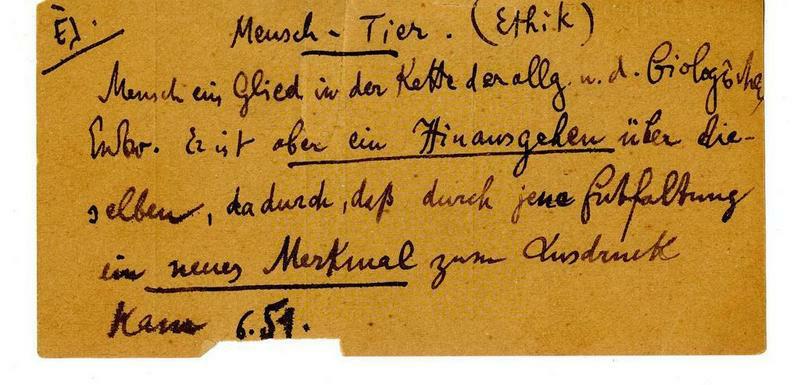 E).
Mensch - Tier. (Ethik)
Mensch ein Glied in der Kette der allg. u. d. biologische
Entw. Er ist aber ein Hinausgehen über die-
selben, dadurch, daß durch jene Entfaltung
ein neues Merkmal zum Ausdruck
kam 6.51.